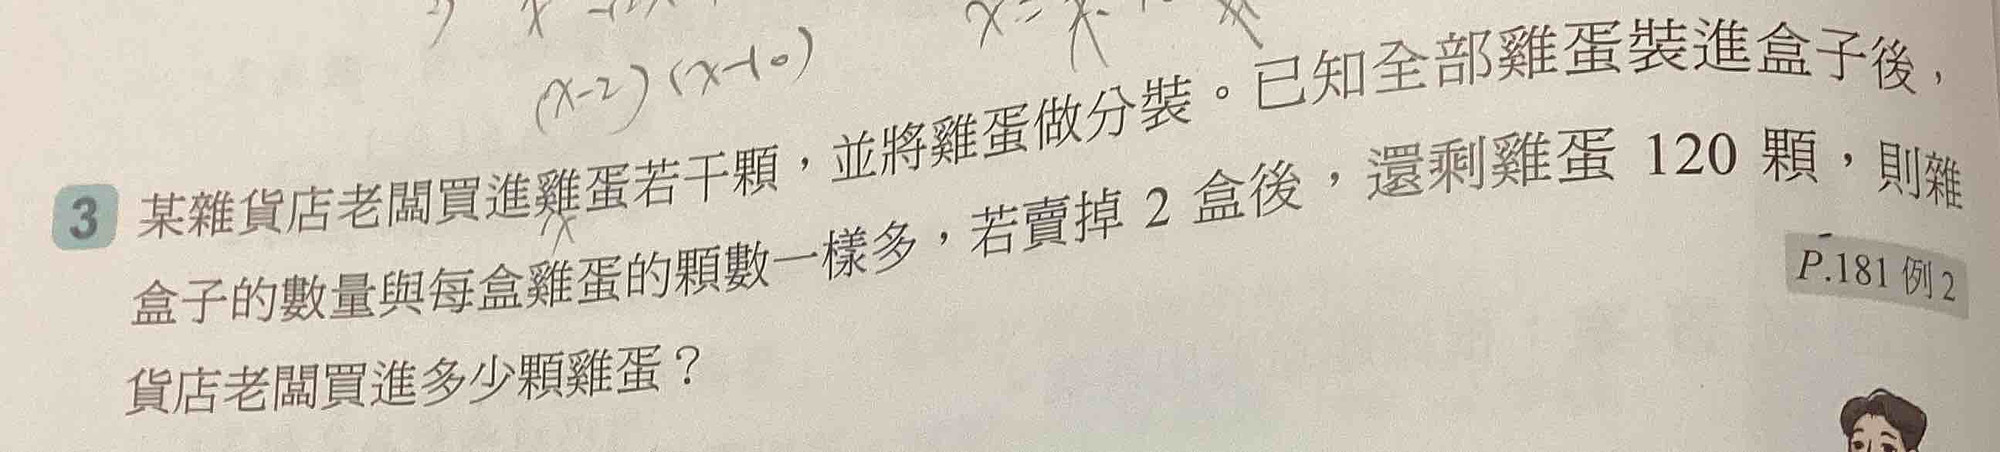 (x-2)(x-10)
3 某雜貨店老闆買進雞蛋若干顆，並將雞蛋做分裝。已知全部雞蛋裝進盒子後，
盒子的數量與每盒雞蛋的顆數一樣多，若賣掉 2 盒後，還剩雞蛋 120 顆，則雜
貨店老闆買進多少顆雞蛋？
P.181 例 2